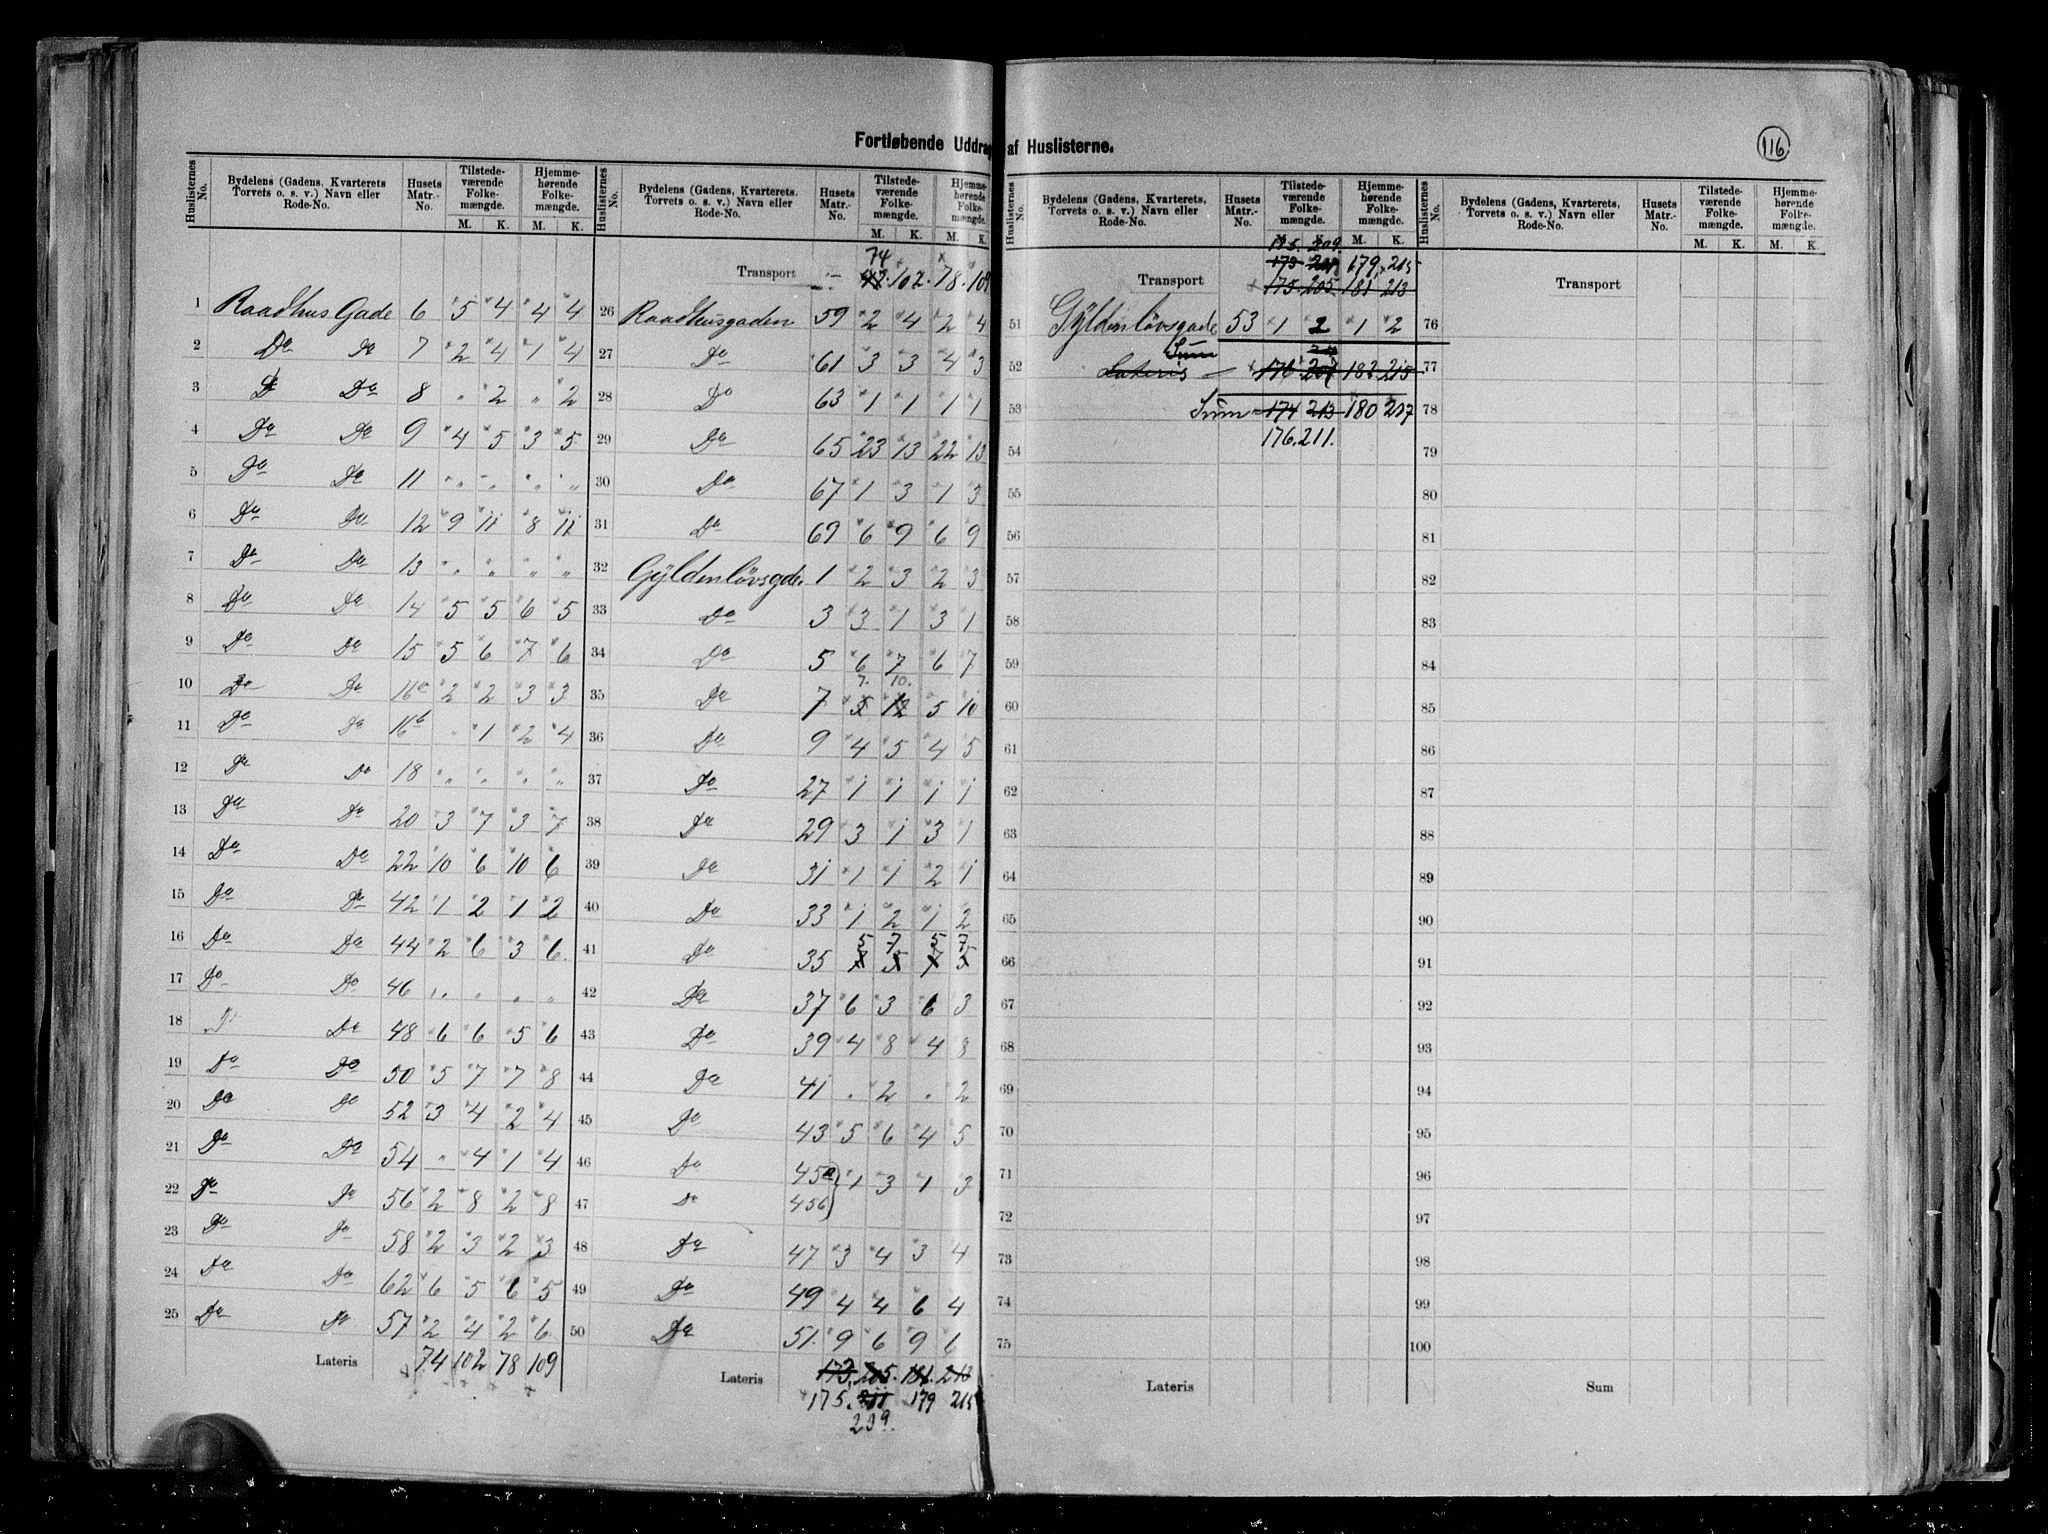 Fortløbende Uddrag af Huslisterne.
116
Huslisternes No. Bydelens (Gadens, Kvarterets Torvets o. s. v.) Navn eller Rode-No. Husets Matr.-No. Tilstedeværende Folkemængde. M. K. Hjemmehørende Folkemængde. M. K.
1 Raadhus Gade 6 5 4 4 4
2 Do Do 7 2 4 1 4
3 Do Do 8 „ 2 „ 2
4 Do Do 9 4 5 3 5
5 Do Do 11 „ „ „ „
6 Do Do 12 9 11 8 11
7 Do Do 13 „ „ „ „
8 Do Do 14 5 5 6 5
9 Do Do 15 5 6 7 6
10 Do Do 16a 2 2 3 3
11 Do Do 16b „ 1 2 4
12 Do Do 18 „ „ „ „
13 Do Do 20 3 7 3 7
14 Do Do 22 10 6 10 6
15 Do Do 42 1 2 1 2
16 Do Do 44 2 6 3 6
17 Do Do 46 „ „ „ „
18 Do Do 48 6 6 5 6
19 Do Do 50 5 7 7 8
20 Do Do 52 3 4 2 4
21 Do Do 54 „ 4 1 4
22 Do Do 56 2 8 2 8
23 Do Do 58 2 3 2 3
24 Do Do 62 6 5 6 5
25 Do Do 57 2 4 2 6
Lateris 74 102 78 109
Huslisternes No. Bydelens (Gadens, Kvarterets, Torvets o. s. v.) Navn eller Rode-No. Husets Matr.-No. Tilstedeværende Folkemængde. M. K. Hjemmehørende Folkemængde. M. K.
74
Transport 102 78 109
26 Raadhusgaden 59 2 4 2 4
27 Do 61 3 3 4 3
28 Do 63 1 1 1 1
29 Do 65 23 13 22 13
30 Do 67 1 3 1 3
31 Do 69 6 9 6 9
32 Gyldenløvsgde. 1 2 3 2 3
33 Do 3 3 1 3 1
34 Do 5 6 7 6 7
7. 10.
35 Do 7 5 12 5 10
36 Do 9 4 5 4 5
37 Do 27 1 1 1 1
38 Do 29 3 1 3 1
39 Do 31 1 1 2 1
40 Do 33 1 2 1 2
5 7 5 7
41 Do 35 7 5 7 5
42 Do 37 6 3 6 3
43 Do 39 4 8 4 8
44 Do 41 „ 2 „ 2
45 Do 43 5 6 4 5
46 Do 45a 1 3 1 3
47 Do 45b
48 Do 47 3 4 3 4
49 Do 49 4 4 6 4
50 Do 51. 9 6 9 6
Lateris 173. 205. 181. 213
175. 211 179 215
209.
Huslisternes No. Bydelens (Gadens, Kvarterets, Torvets o. s. v.) Navn eller Rode-No. Husets Matr.-No. Tilstedeværende Folkemængde. M. K. Hjemmehørende Folkemængde. M. K.
175. 209.
173 179, 215
Transport 175. 205. 181 213
51 Gyldenløvsgade 53 1 2 1 2
Sum
52 Lateris 176 207 182 215
53 Sum 174 213 180 217
54 176. 211.
55
56
57
58
59
60
61
62
63
64
65
66
67
68
69
70
71
72
73
74
75
Lateris
Huslisternes No. Bydelens (Gadens, Kvarterets, Torvets o. s. v.) Navn eller Rode-No. Husets Matr.-No. Tilstedeværende Folkemængde. M. K. Hjemmehørende Folkemængde. M. K.
Transport
76
77
78
79
80
81
82
83
84
85
86
87
88
89
90
91
92
93
94
95
96
97
98
99
100
Sum